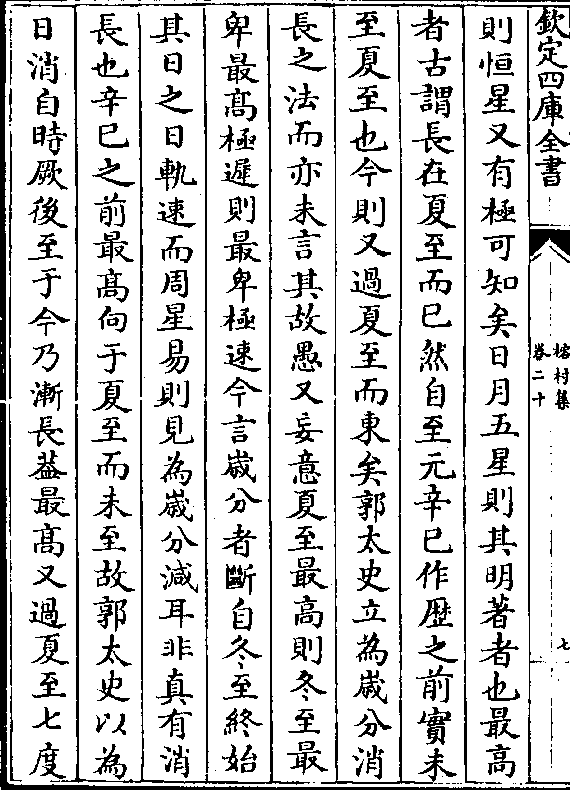 欽定四庫全書
榕村集
卷二十
七
則恒星又有極可知矣日月五星則其明著者也最高
者古謂長在夏至而已然自至元辛巳作歴之前實未
至夏至也今則又過夏至而東矣郭太史立為嵗分消
長之法而亦未言其故愚又妄意夏至最高則冬至最
卑最髙極遲則最卑極速今言嵗分者斷自冬至終始
其日之日軌速而周星易則見為嵗分減耳非真有消
長也辛巳之前最髙向于夏至而未至故郭太史以為
日消自時厥後至于今乃漸長葢最髙又過夏至七度